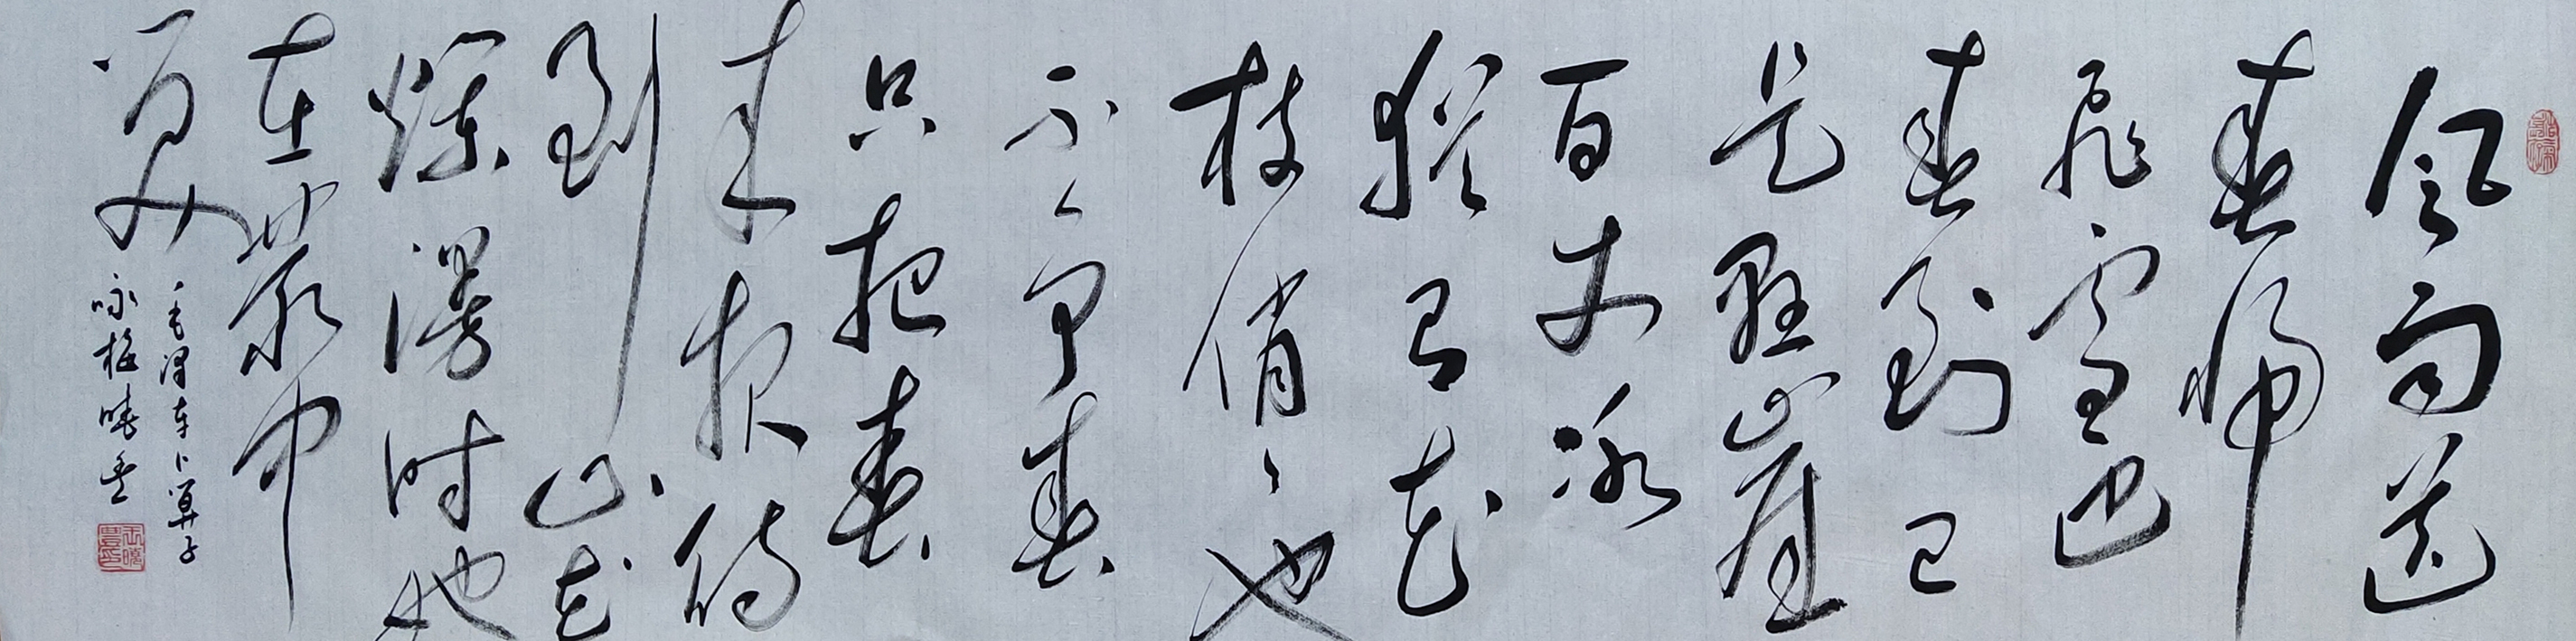 风雨送
春归
飛雪迎
春到已
是悬崖
百丈冰
犹有花
枝俏〻也
不争春
只把春
来报待
到山花
烂漫时她
在丛中
笑
毛泽东卜算子
咏梅 晓丰